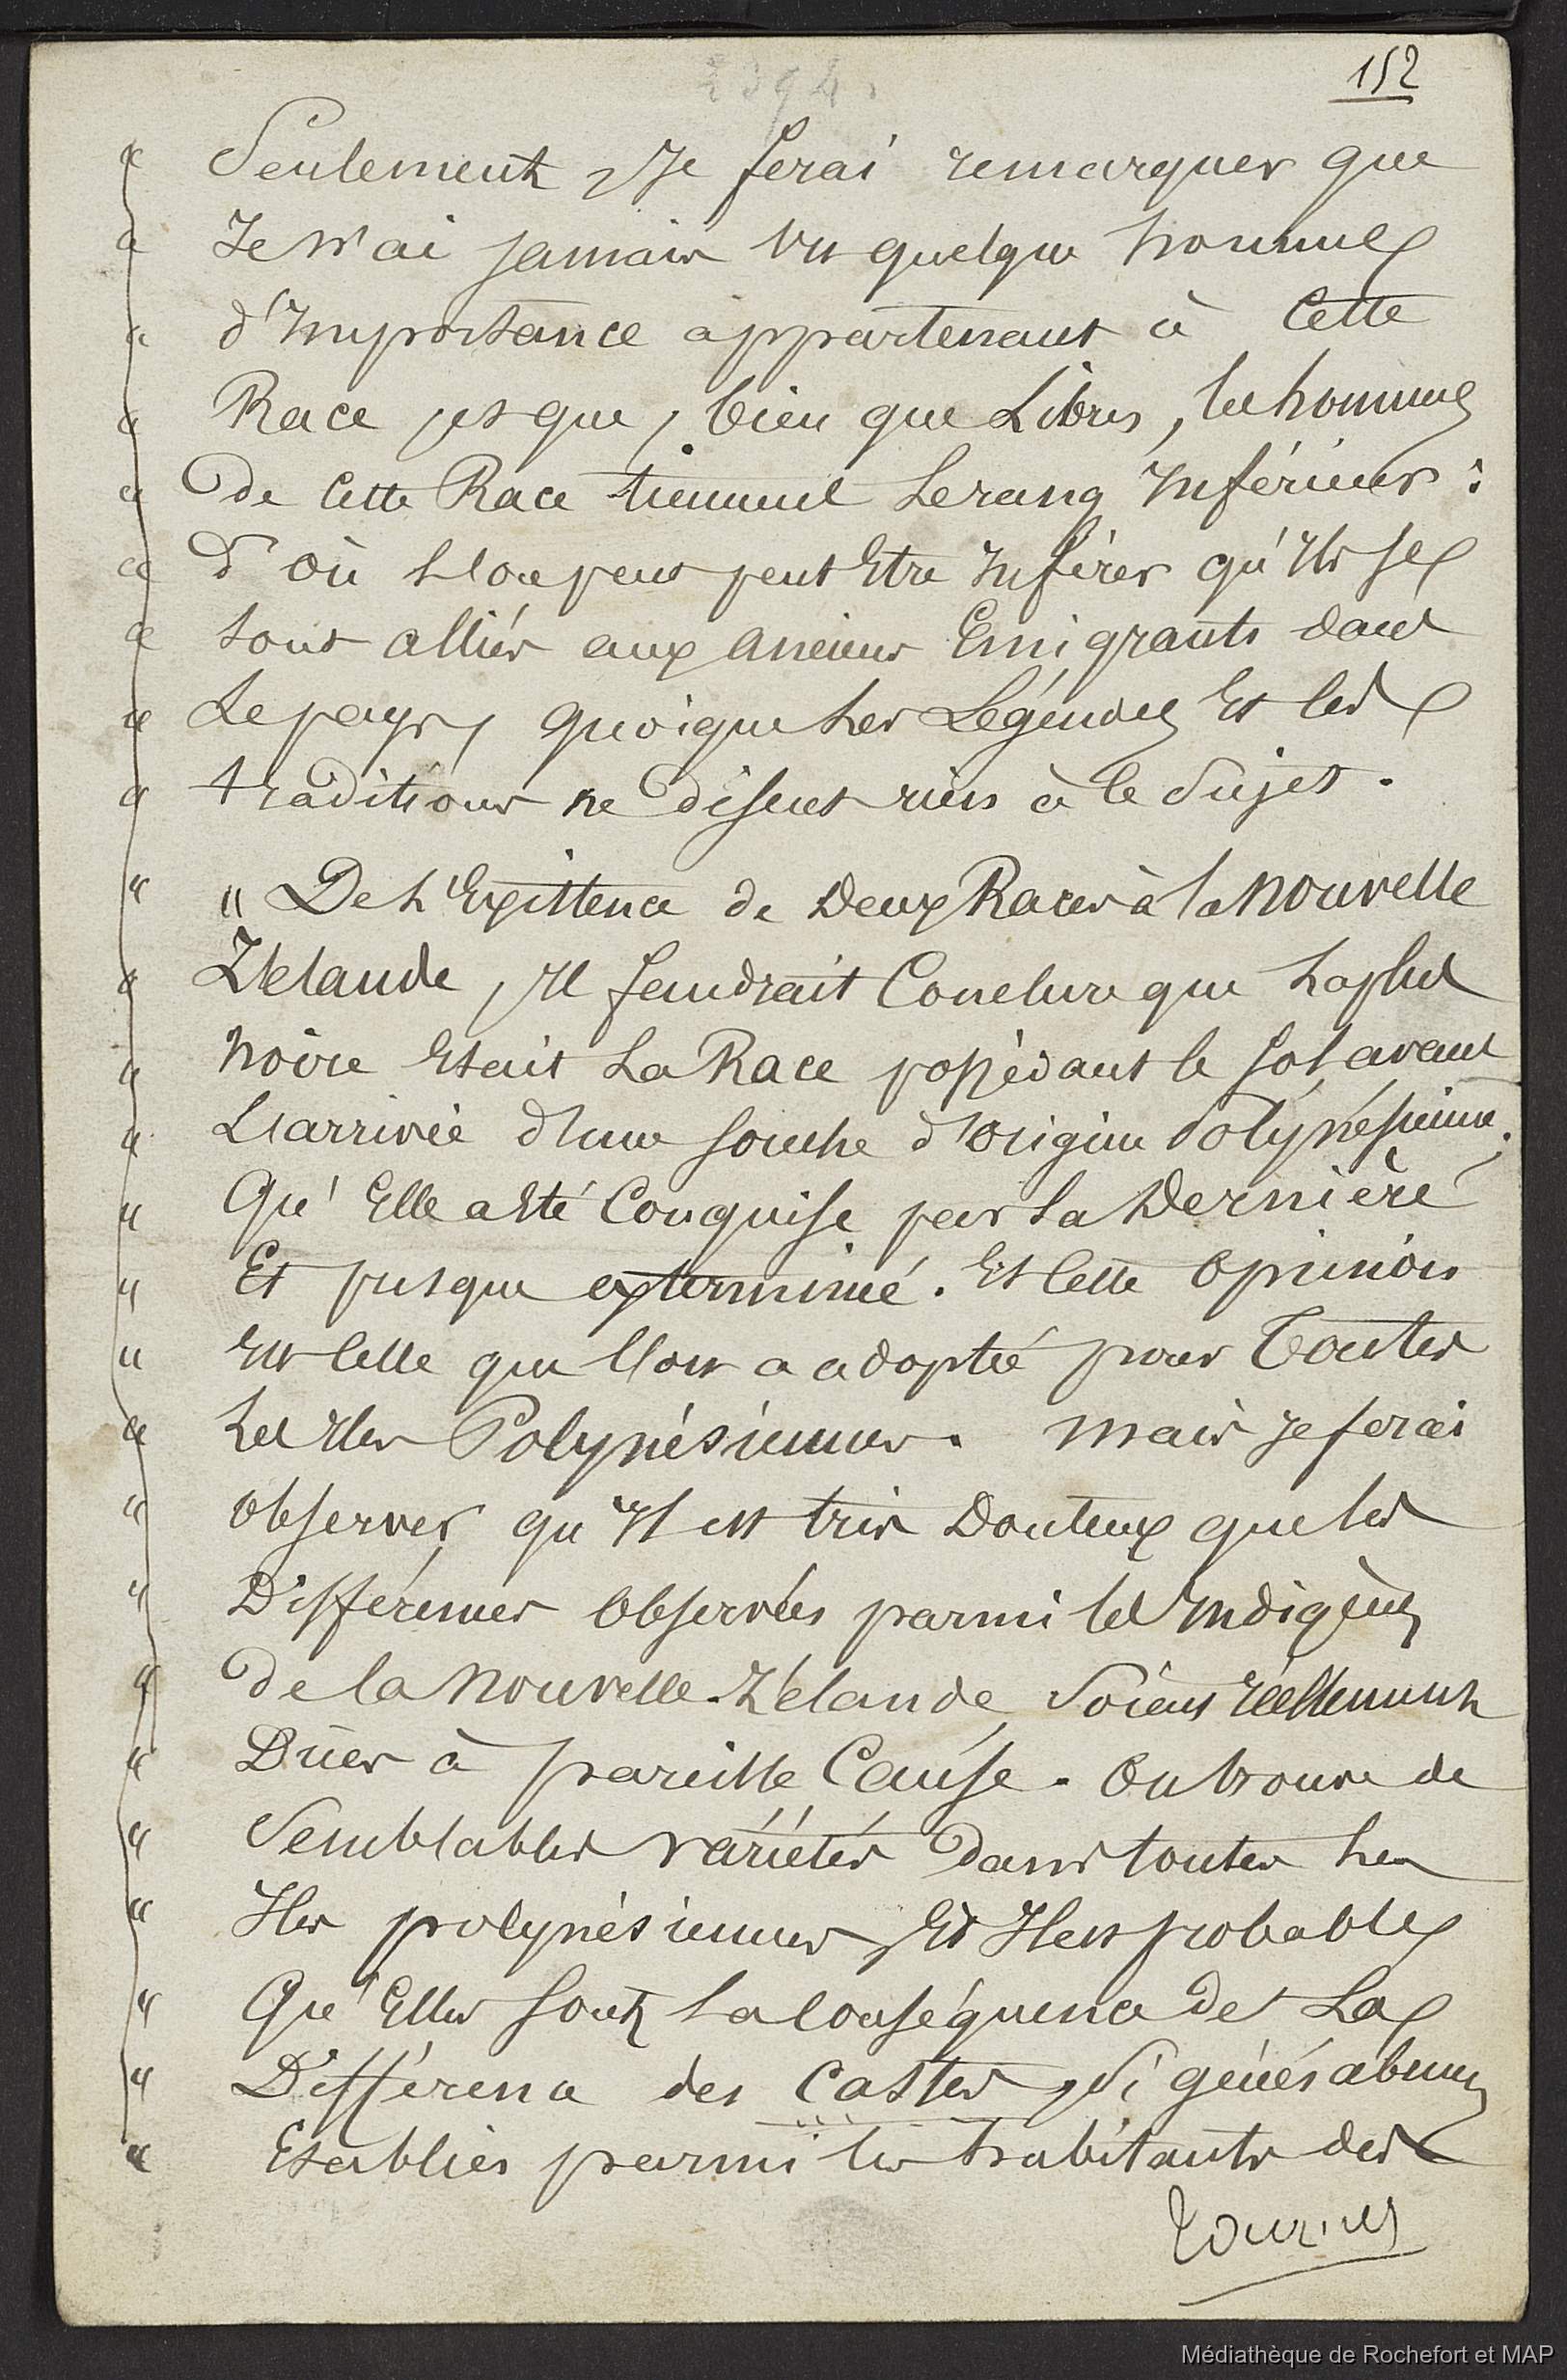 2394.
152
" Seulement Je ferai remarquer que
" Je n'ai jamais vu quelque homme
" d'Importance appartenant à Cette
" Race, et que, bien que Libres, les hommes
" de Cette Race tiennent Le rang Inférieur :
" d'où L'on peut peut Etre Inférer qu'Ils se
" sont alliés aux Anciens Emigrants dans
" Le pays, quoique Les Légendes Et les
" traditions ne disent rien à ce Sujet.
" " De L'Existence de Deux Races à la Nouvelle
" Zélande, Il faudrait Conclure que La plus
" Noire Etait La Race possédant le sol avant
" L'arrivée d'une souche d'origine Polynésienne ;
" Qu'Elle a Eté Conquise par La Dernière
" Et presque exterminé. Et Cette Opinion
" Est Celle que l'on a adopté pour Toutes
" Les Iles Polynésiennes. Mais Je ferai
" observer qu'Il est très Douteux que les
" Différences Observées parmi les Indigènes
" De la Nouvelle-Zélande Soient réellement
" Dûes à pareille Cause. On trouve de
" Semblables variétés Dans toutes les
" Iles polynésiennes, Et Il est probable
" Qu'Elles sont La conséquence de La
" Différence des Castes, Si généralement
" Etablies parmi les habitants des
Médiathèque de Rochefort et MAP